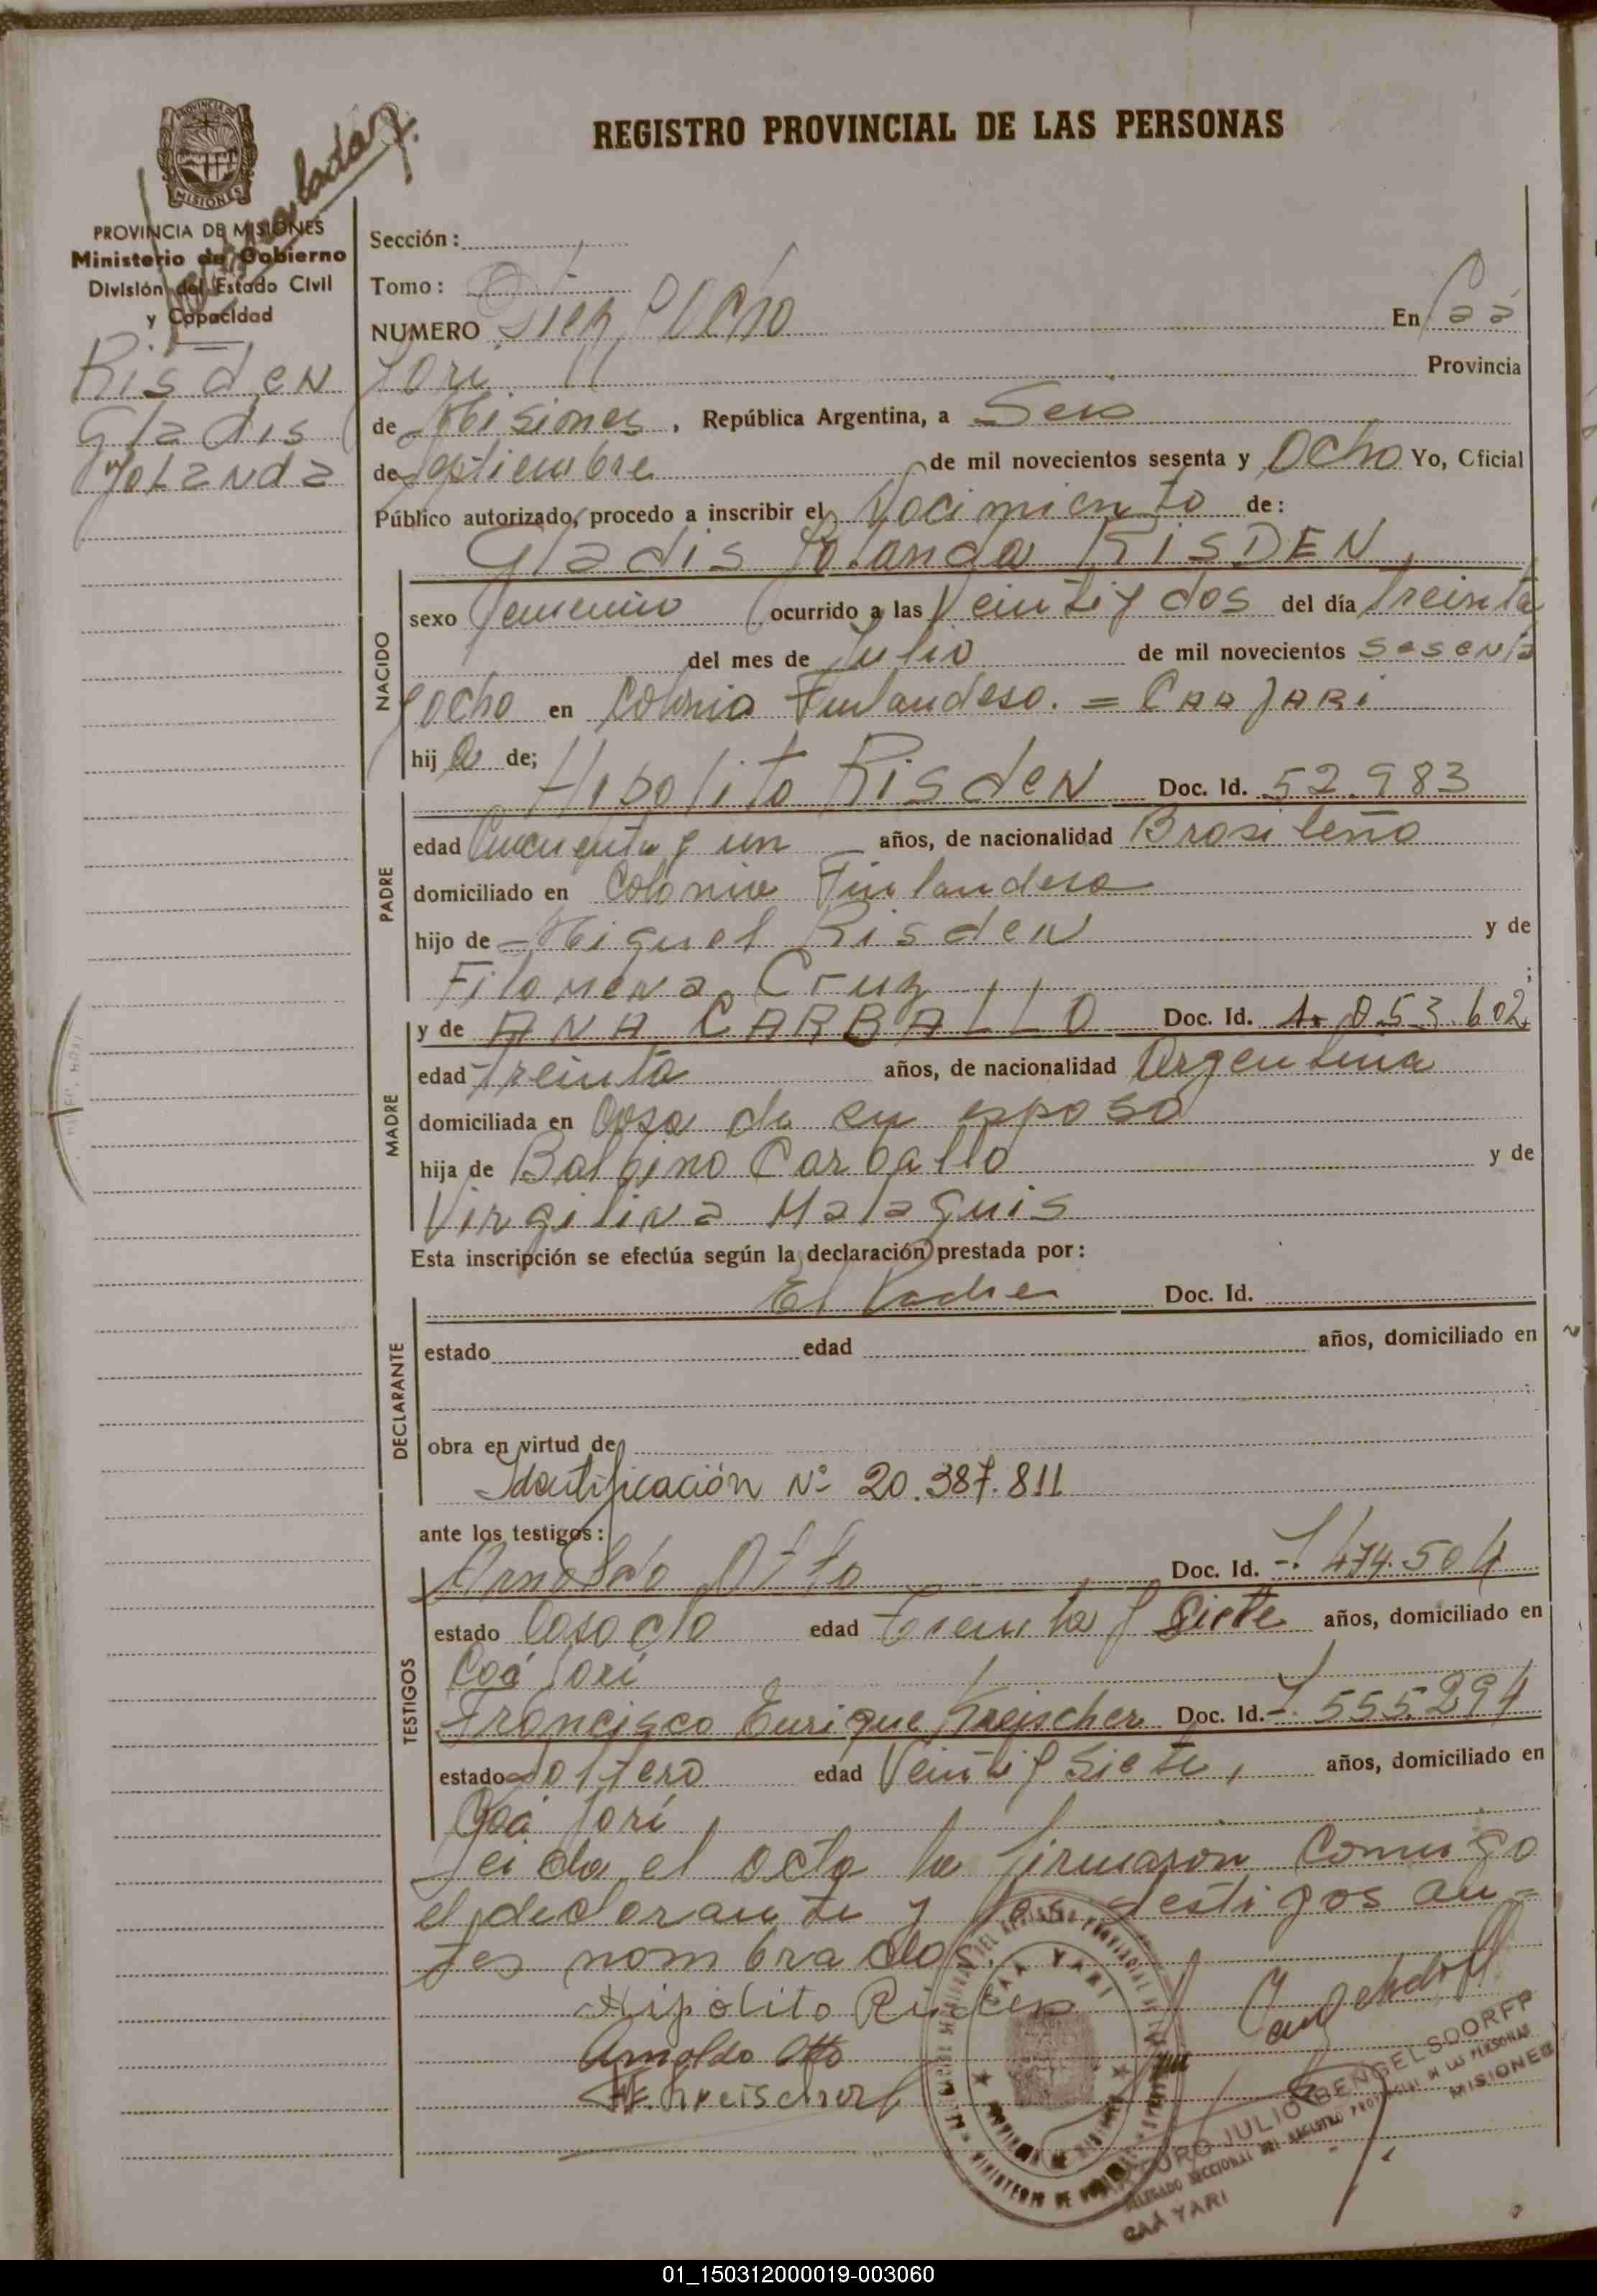 REGISTRO PROVINCIAL DE LAS PERSONAS
PROVINCIA DE MISIONES
Ministerio de Gobierno
División del Estado Civil
y Capacidad
Risden
Gladis
Yolanda
Sección:
Tomo:
NUMERO Diez y Ocho En Caá
Yari Provincia
de Misiones, República Argentina, a Seis
de Septiembre de mil novecientos sesenta y Ocho Yo, Oficial
Público autorizado, procedo a inscribir el Nacimiento de:
Gladis Yolanda RISDEN,
NACIDO
sexo Femenino ocurrido a las Veinti y dos del día treinta
del mes de Julio de mil novecientos sesenta
y ocho en Colonia Finlandesa. = CAA YARi
hija de;
PADRE
Hipolito Risden Doc. Id. 52.983
edad Cincuenta y un años, de nacionalidad Brasileña
domiciliado en Colonia Finlandesa
hijo de Miguel Risden y de
Filomena Cruz ;
MADRE
y de ANA CARBALLO Doc. Id. 1.053.602,
edad treinta años, de nacionalidad Argentina
domiciliada en Casa de su esposo
hija de Balbino Carballo y de
Virgilina Malaguis
Esta inscripción se efectúa según la declaración prestada por:
DECLARANTE
El Padre Doc. Id.
estado edad años, domiciliado en
obra en virtud de
Identificación Nº 20.387.811
ante los testigos:
TESTIGOS
Arnoldo Otto Doc. Id. 7.474.504
estado Casado edad treinta y Siete años, domiciliado en
Caá Yarí
Francisco Enrique Kreischer Doc. Id. 7.555.294
estado Soltero edad Veinti y Siete, años, domiciliado en
Caá Yarí
Leida el acta la firmaron comigo
el declarante y los testigos an-
tes nombrados.
Hipólito Risden
Arnoldo Otto
F.E. Kreischer
CAA YARI
ARTURO JULIO BENGELSDORFF
DELEGADO SECCIONAL DEL REGISTRO PROVINCIAL DE LAS PERSONAS
CAÁ YARI MISIONES
01_150312000019-003060